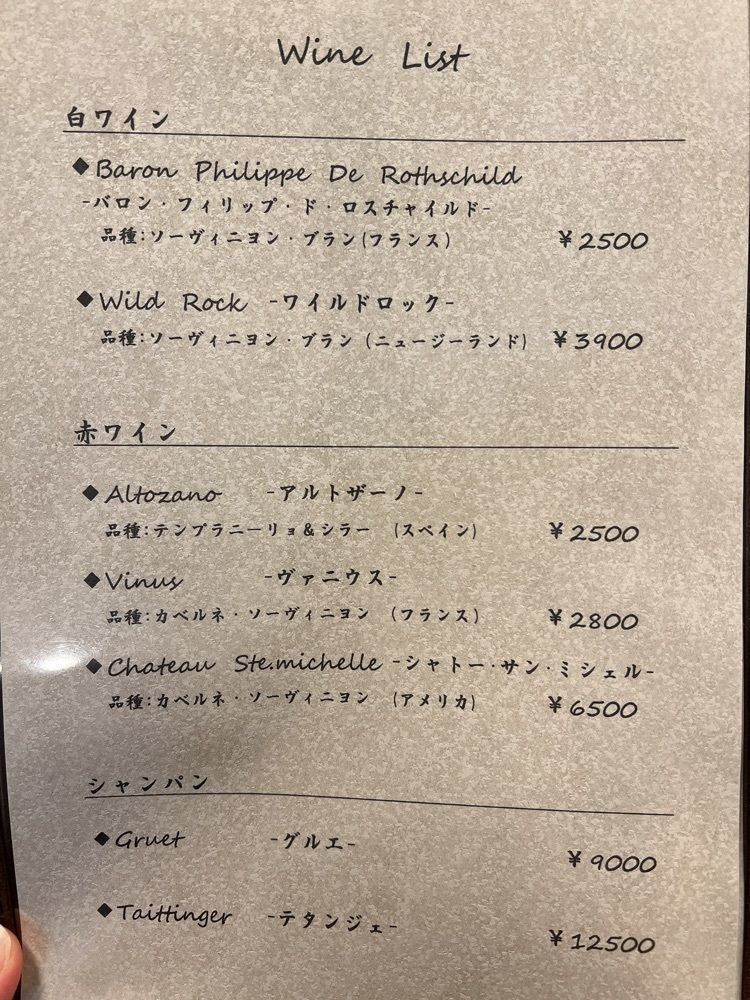 Wine List
白ワイン
◆Baron Philippe De Rothschild
-バロン・フィリップ・ド・ロスチャイルド-
品種:ソーヴィニヨン・ブラン(フランス) ¥2500
◆Wild Rock -ワイルドロック-
品種:ソーヴィニヨン・ブラン (ニュージーランド) ¥3900
赤ワイン
◆Altozano -アルトザーノ-
品種:テンプラニーリョ&シラー (スペイン) ¥2500
◆Vinus -ヴァニウス-
品種:カベルネ・ソーヴィニヨン (フランス) ¥2800
◆Chateau Ste.michelle -シャトー・サン・ミシェル-
品種:カベルネ・ソーヴィニヨン (アメリカ) ¥6500
シャンパン
◆Gruet -グルエ- ¥9000
◆Taittinger -テタンジェ- ¥12500